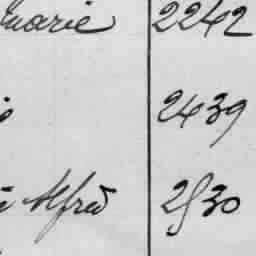 marie 2242
2439
Alfred 2530